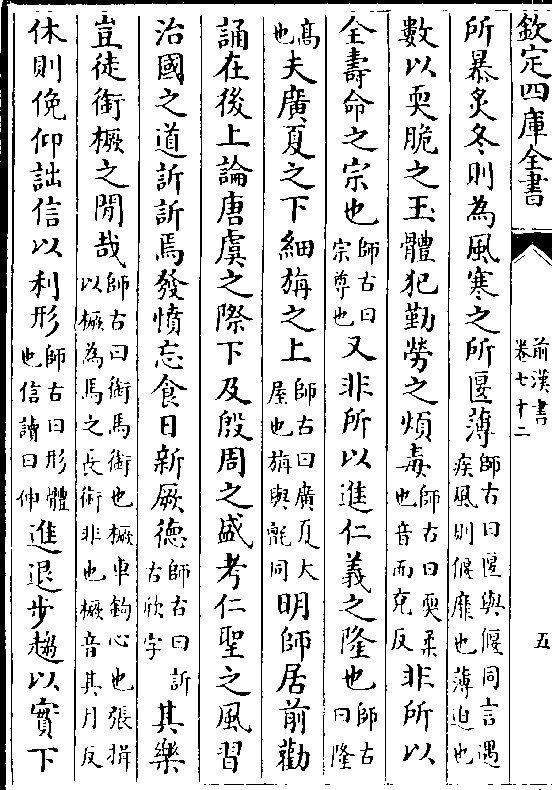 欽定四庫全書
前漢書
卷七十二
五
所暴炙冬則為風寒之所匽薄師古曰匽與偃同言遇
疾風則偃靡也薄迫也
數以耎脆之玉體犯勤勞之煩毒師古曰耎柔
也音而兗反非所以
全壽命之宗也師古曰
宗尊也又非所以進仁義之隆也師古
曰隆
高
也夫廣夏之下細旃之上師古曰廣夏大
屋也旃與氈同明師居前勸
誦在後上論唐虞之際下及殷周之盛考仁聖之風習
治國之道訢訢焉發憤忘食日新厥德師古曰訢
古欣字其樂
豈徒銜橛之閒哉師古曰銜馬銜也橛車鉤心也張揖
以橛為馬之長銜非也橛音其月反
休則俛仰詘信以利形師古曰形體
也信讀曰伸進退步趨以實下